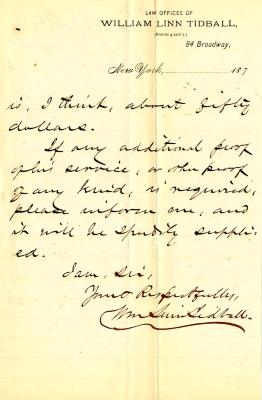 LAW OFFICES OF
WILLIAM LINN TIDBALL,
(Rooms 4 and 5,)
84 Broadway,
New York, 187
is, I think, about fifty
dollars.
If any additional proof
of his service, or other proof
of any kind, is required,
please inform me, and
it will be speedily suppli-
ed.
I am, sir,
Yours Respectfully,
Wm Linn Tidball.